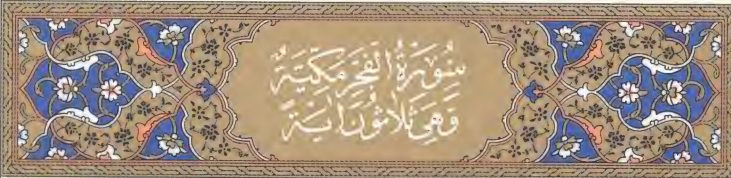 سُورَةُ الْفَجْرِ مَكِّيَّةٌ
وَهِيَ ثَلَاثُونَ اٰيَةً